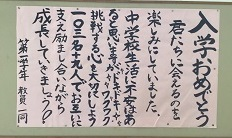 入学おめでとう
君たちに会えるのを、
楽しみにしていました。
中学校生活に不安はあ
ると思いますが、ドキドキ、ワクワク
挑戦する心を大切にしよう
一〇三名十九人でお互いに
支え励まし合いながら
成長していきましょう!!
第一学年 教員一同